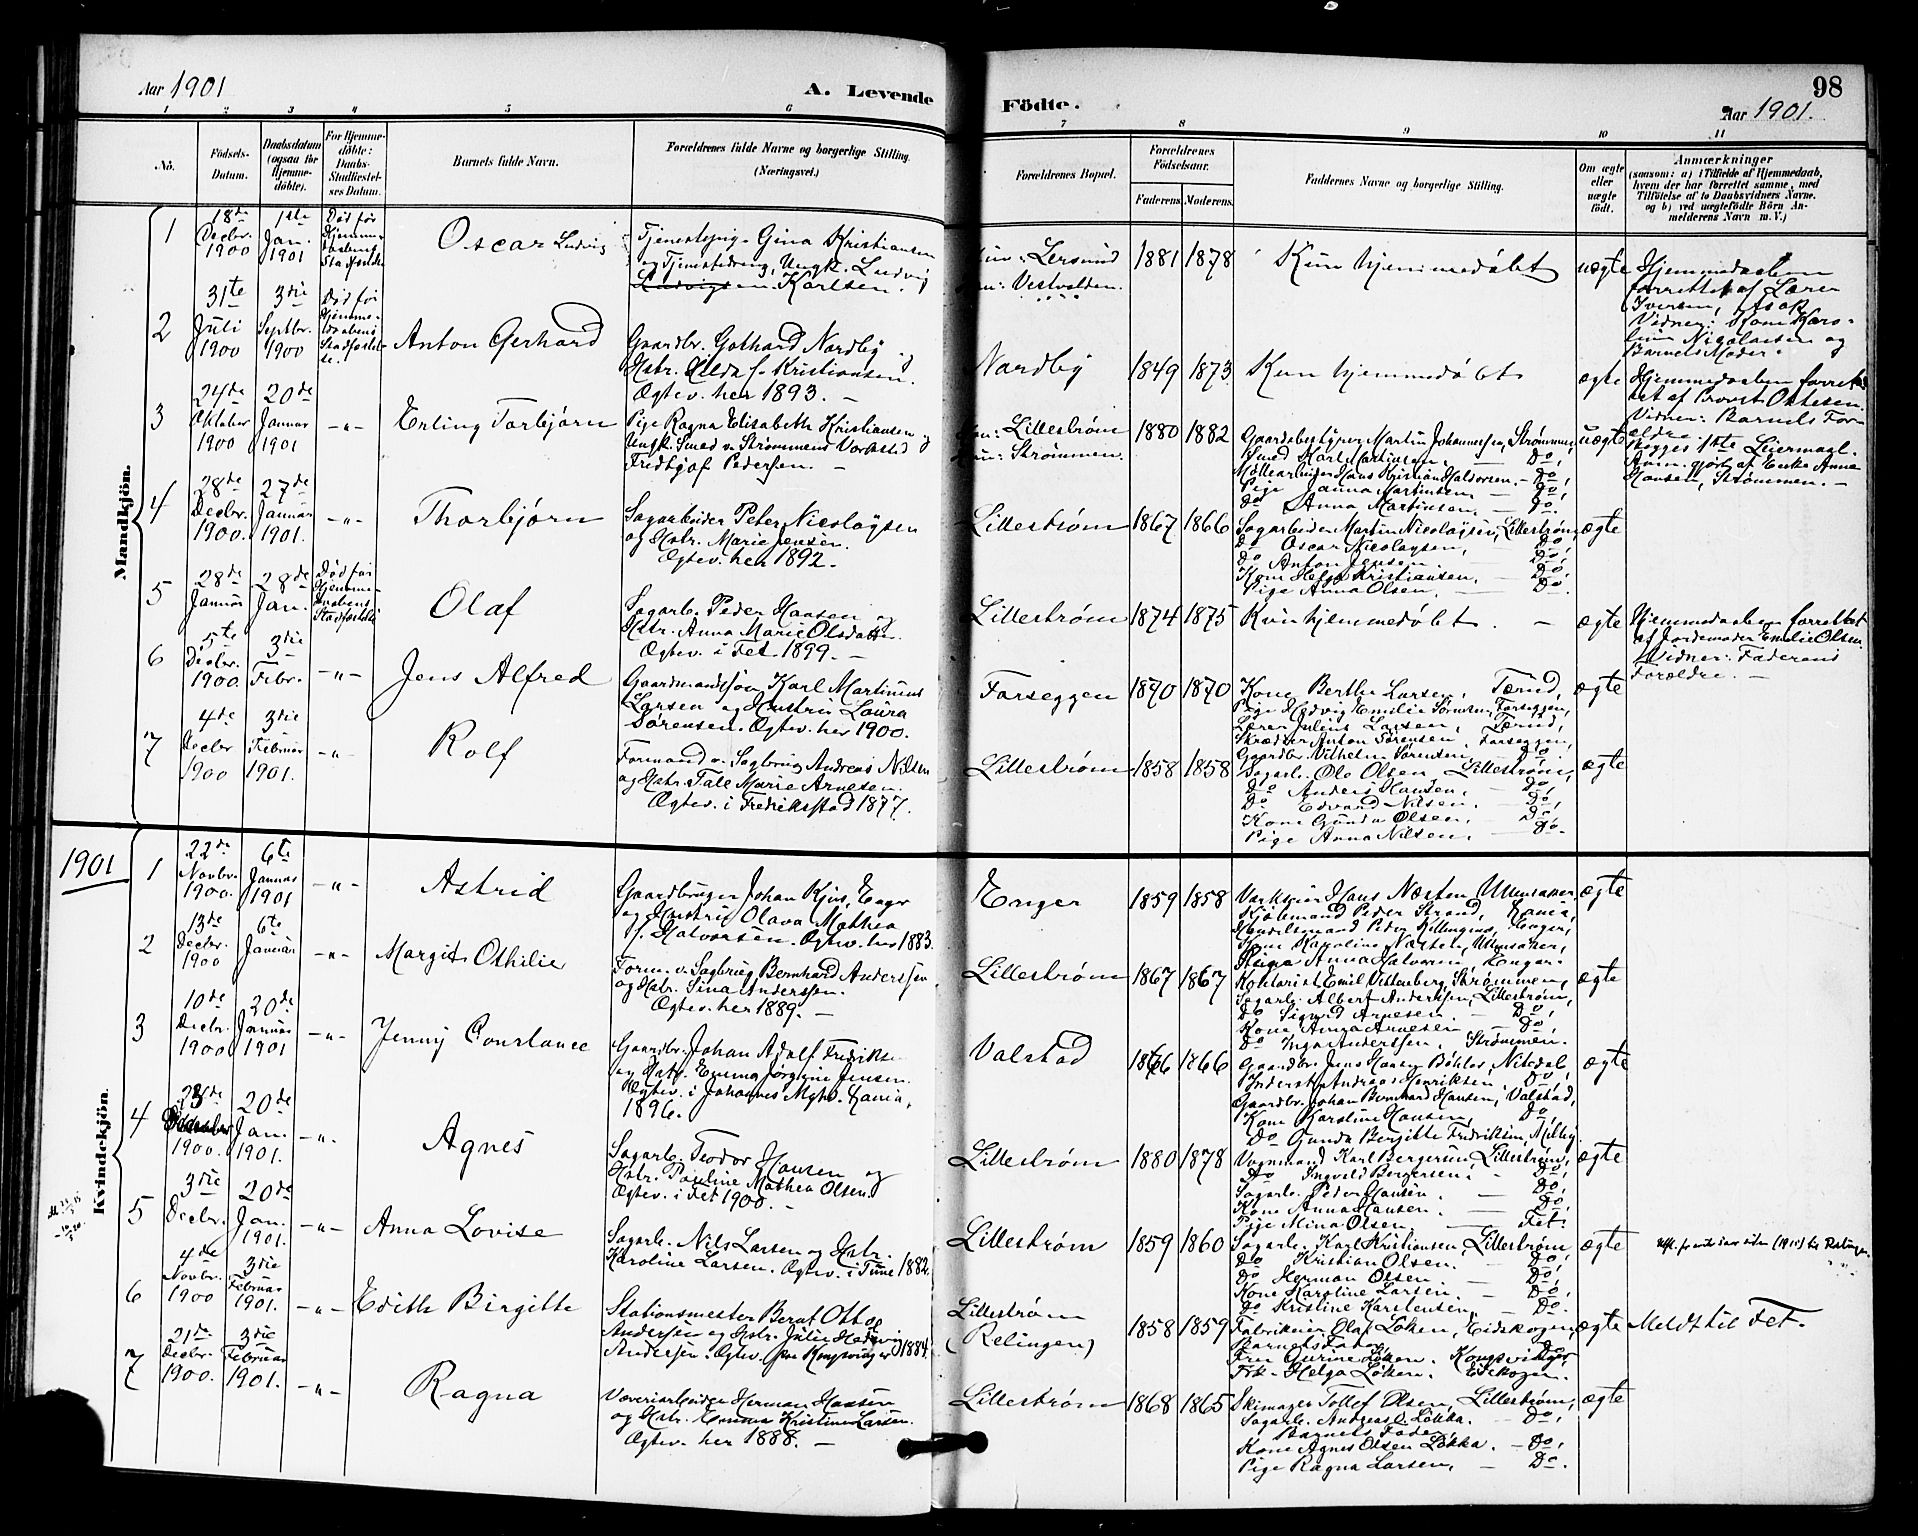 Aar 1901
A. Levende Födte.
98
Aar 1901.
1 2 3 4 5 6 7 8 9 10 11
No.
Födsels-
Datum.
Daabsdatum
(ogsaa for
Hjemme-
döbte).
For Hjemme-
döbte:
Daabs-
Stadfæstel-
ses Datum.
Barnets fulde Navn.
Forældrenes fulde Navne og borgerlige Stilling.
(Næringsvei.)
Forældrenes Bopæl.
Forældrenes
Födselsaar.
Faderens
Moderens.
Faddernes Navne og borgerlige Stilling.
Om ægte
eller
uægte
födt.
Anmærkninger
(saasom: a) i Tilfælde af Hjemmedaab,
hvem der har forrettet samme, med
Tilföielse af to Daabsvidners Navne.
og b) ved uægtefödte Börn An-
melderens Navn m. V.)
Mandkjön.
1
18de
Decbr.
1900
1ste
Jan.
1901
Död för
Hjemme-
daabens
Stadfæstelse
Oscar Ludvig
Tjenestepige Gina Kristiansen
og Tjenestedreng, Ungk. Ludvig
Karlsen.
Lersund
Vestvolden.
1881
1878
Kun hjemmedøbt
uægte
Hjemmedaaben
forrettet af Lærer
Iversen, Asak
Vidner: Kone Karo-
line Nicolaisen og
Barnets Moder.
2
31te
Juli
1900
3die
Septbr.
1900
Död för
Hjemme-
daabens
Stadfæstel-
se.
Anton Gerhard
Gaardbr. Gothard Nordby og
Hstr. Hilda f. Kristiansen.
Ægtev. her 1893. —
Nordby
1849
1873.
Kun hjemmedøbt
ægte
Hjemmedaaben forret-
tet af Provst Ottesen.
Vidner: Barnets For-
ældre.
3
24de
Oktober
1900
20de
Januar
1901
-"-
Erling Torbjørn
Pige Ragna Elisabeth Kristiansen og
Ungk. Smed v. Strømmens Værksted
Fredhjof Pedersen. —
Han: Lillestrøm
Hun: Strømmen.
1880
1882
Gaardsbestyrer Martin Johannesen, Strømmen,
Smed Karl Martinsen. — Do,
Møllearbeider Hans Kristian Halvorsen. - Do,
Pige Janna Martinsen — Do,
Do Anna Martinsen. — Do.
uægte
Begges 1ste Leiermaal.
Anm. gjort af Enke Anna
Hansen, Strømmen. —
4
28de
Decbr.
1900.
27de
Januar
1901.
-"-
Thorbjørn
Sagarbeider Peter Nicolaysen
og Hstr. Marie Jensen.
Ægtev. her 1892.
Lillestrøm
1867
1866
Sagarbeider Martin Nicolaysen, Lillestrøm,
Do Oscar Nicolaysen, Do,
Do Anton Jensen Do,
Kone Helga Kristiansen. — Do,
Pige Anna Olsen. — Do.
ægte
5
28de
Januar
28de
Jan.
Död för
Hjemme-
daabens
Stadfæstelse
Olaf
Sagarb. Peder Hansen og
Hstr. Anna Marie Olsdatter.
Ægtev. i Fet 1899. —
Lillestrøm
1874
1875
Kun hjemmedøbt. —
ægte
Hjemmedaaben forrettet
af Jordemoder Emilie Olsen.
Vidner: Faderens
Forældre. —
6
5te
Decbr.
1900.
3die
Febr.
-"-
Jens Alfred
Gaardmandssøn Karl Martinus
Larsen og Hustru Laura
Sørensen. Ægtev. her 1900.
Farseggen
1870
1870
Kone Berthe Larsen, Tærud,
Pige Hedvig Emilie Sørensen, Farseggen,
Lærer Julius Larsen, Tærud,
Skrædder Anton Sørensen, Farseggen,
Gaardbr. Vilhelm Sørensen Do.
ægte
7
4de
Decbr
1900
3die
Februar
1901.
-"-
Rolf
Formand v. Sagbrug Andreas Nilsen
og Hstr. Tale Marie Arnesen.
Ægtev. i Fredriksstad 1877.
Lillestrøm
1858
1858
Sagarb. Ole Olsen, Lillestrøm,
Do Anders Hansen. — Do,
Do Edvard Nilsen. — Do,
Kone Gunda Olsen. — Do,
Pige Anna Nilsen, — Do.
ægte
1901
Kvindekjön.
1
22de
Novbr.
1900.
6te
Januar
1901
-"-
Astrid
Gaardbruger Johan Kjus, Enger
og Hustru Olava Mathea
f. Halvorsen. Ægtev. her 1883.
Enger
1859
1858
Værkseier Hans Næsten, Ullensaker
Kjøbmand Peder Strand, Rania,
Handelsmand Peder Killingmo, Enger,
Kone Karoline Næsten, Ullensaker,
Pige Anna Halvorsen Enger.
ægte
2
13de
Decbr.
1900
6te
Januar
-"-
Margit Othilie
Form. v. Sagbrug Bernhard Anderssen
og Hstr. Sina Anderssen.
Ægtev. her 1889. —
Lillestrøm
1867
1867
Kontorist Emil Vestenberg, Strømmen,
Sagarb. Albert Anderssen, Lillestrøm,
Do Sigurd Arnesen. — Do,
Kone Anna Arnesen — Do,
Do Inga Anderssen, Strømmen.
ægte
3
10de
Decbr.
1900
20de
Januar
1901
-"-
Jenny Constance
Gaardbr. Johan Adolf Fredriksen
og Hstr. Emma Jørgine Jensen.
Ægtev. i Johannes Mgh. Kania,
1896.
Valstad
1866
1866
Gaardbr. Jens Hansen Bøhler, Nitedal,
Inderst Andreas Henriksen. Do,
Gaardbr. Johan Bernhard Hansen, Valstad,
Kone Karoline Hansen, Do,
Do Gunda Bergitte Fredriksen, Melby.
ægte
4
23de
1900.
20de
Jan.
1901.
-"-
Agnes
Sagarb. Teodor Hansen og
Hstr. Pauline Mathea Olsen
Ægtev. i Fet 1900. —
Lillestrøm
1880
1878
Vognmand Karl Bergersen, Lillestrøm,
Do Ingvald Bergersen. Do,
Sagarb. Peder Hansen. — Do,
Kone Anna Hansen. — Do,
Pige Mina Olsen. — Fet.
ægte
5
3die
Decbr.
20de
Jan.
1901.
-"-
Anna Lovise
Sagarb. Nils Larsen og Hstr.
Karoline Larsen. Ægtev. i Tune 1882.
Lillestrøm
1859
1860
Sagarb. Karl Kristiansen, Lillestrøm,
Do Kristian Olsen. Do,
Do Herman Olsen. — Do,
Kone Karoline Larsen. — Do,
Do Kristine Karstensen, — Do.
ægte
6
4de
Novbr.
1900
3die
Februar
1901.
-"-
Edith Birgitte
Stationsmester Bernt Otto
Andersen og Hstr. Julie Hedevig
Andersen. Ægtev. paa Kongsvinger 1884.
Lillestrøm
(Relingen)
1858
1859
Fabrikeier Olaf Løken, Eidskogen,
Barnets Fader, Do,
Fru Gurine Løken. Kongsvinger,
Frk. Helga Løken. Eidskogen.
ægte
Meldt til Fet.
7
21de
Decbr.
1900.
3die
Februar
1901.
-"-
Ragna
Væveriarbeider Herman Hansen
og Hstr. Emma Kristine Larsen.
Ægtev. her 1888. —
Lillestrøm
1868
1865
Skimager Tollef Olsen, Lillestrøm,
Sagarb. Andreas Løkka. Do,
Barnets Fader
Kone Agnes Olsen Løkka. - Do,
Pige Ragna Larsen, — Do.
ægte